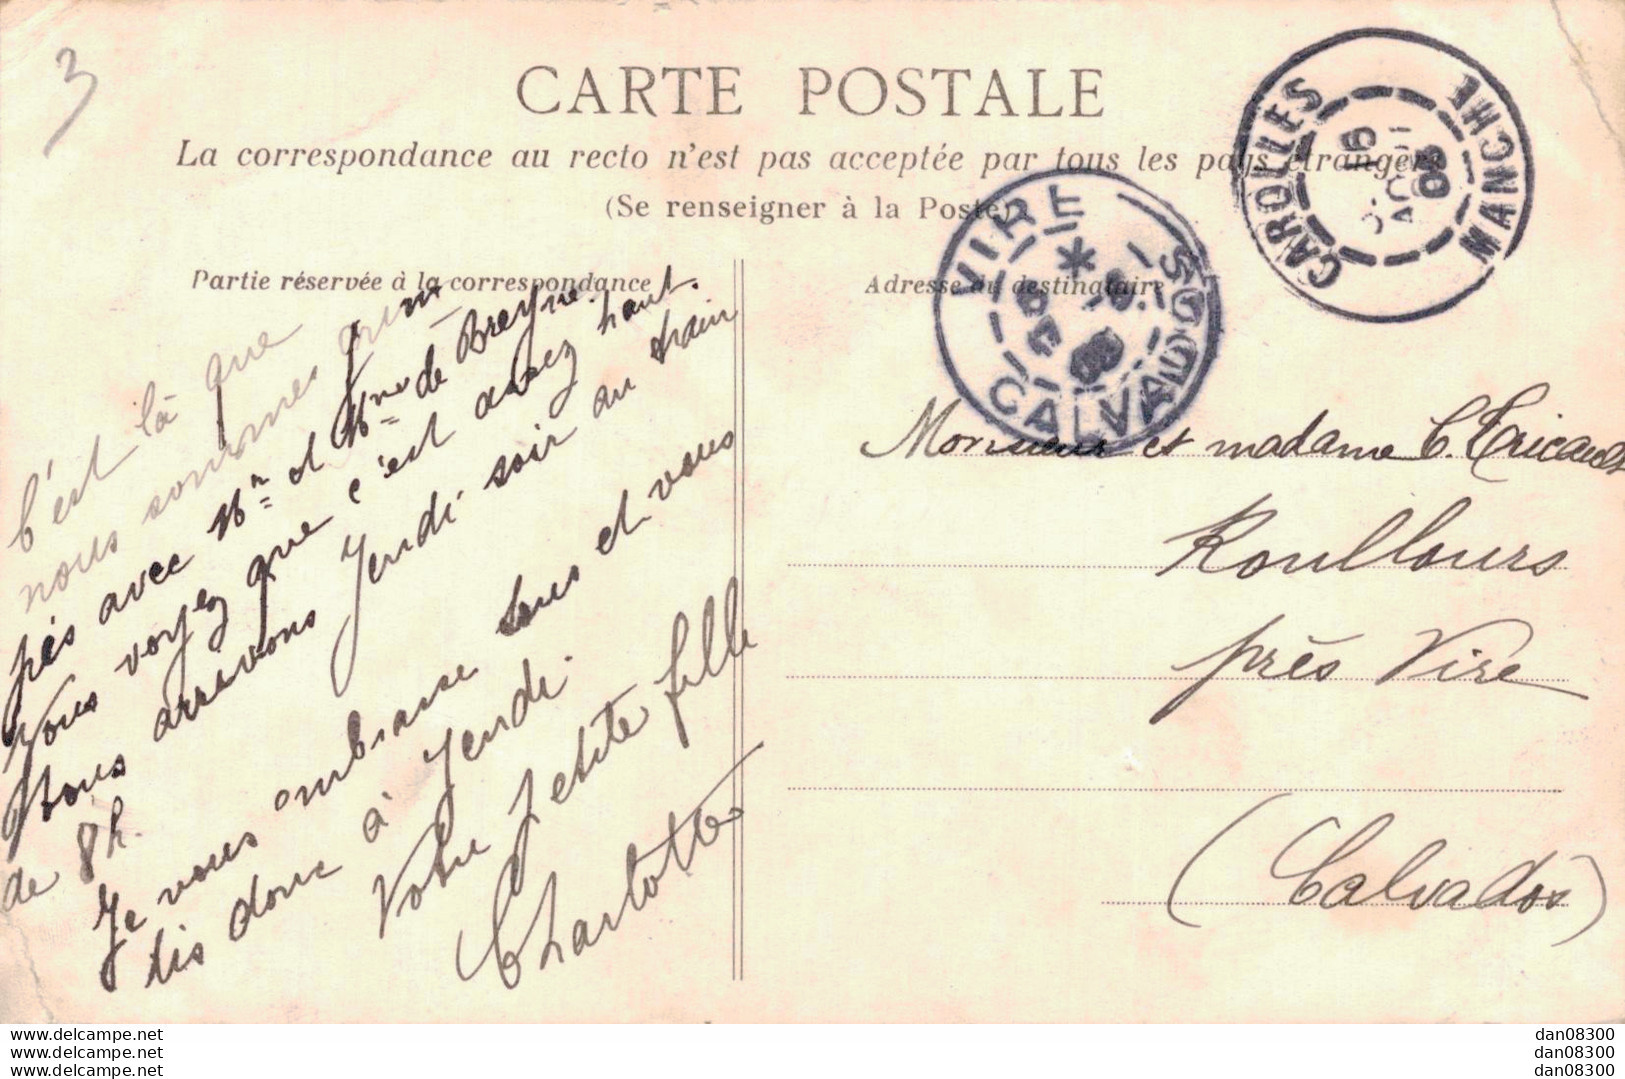 3
CARTE POSTALE
La correspondance au recto n'est pas acceptée par tous les pays étrangers
(Se renseigner à la Poste)
Partie réservée à la correspondance
Adresse du destinataire
CAROLLES
MANCHE
16
AOUT
VIRE
CALVADOS
C'est là que
nous sommes grim
pés avec Mr et Mme de Breyne.
Vous voyez que c'est assez haut.
Nous arrivons Jendi soir au train
de 8h.
Je vous embrasse tous et vous
dis donc à Jendi.
Votre petite fille
Charlotte
Monsieur et madame C. Tricault
Roullours
près Vire
(Calvados)
www.delcampe.net
www.delcampe.net
www.delcampe.net
dan08300
dan08300
dan08300